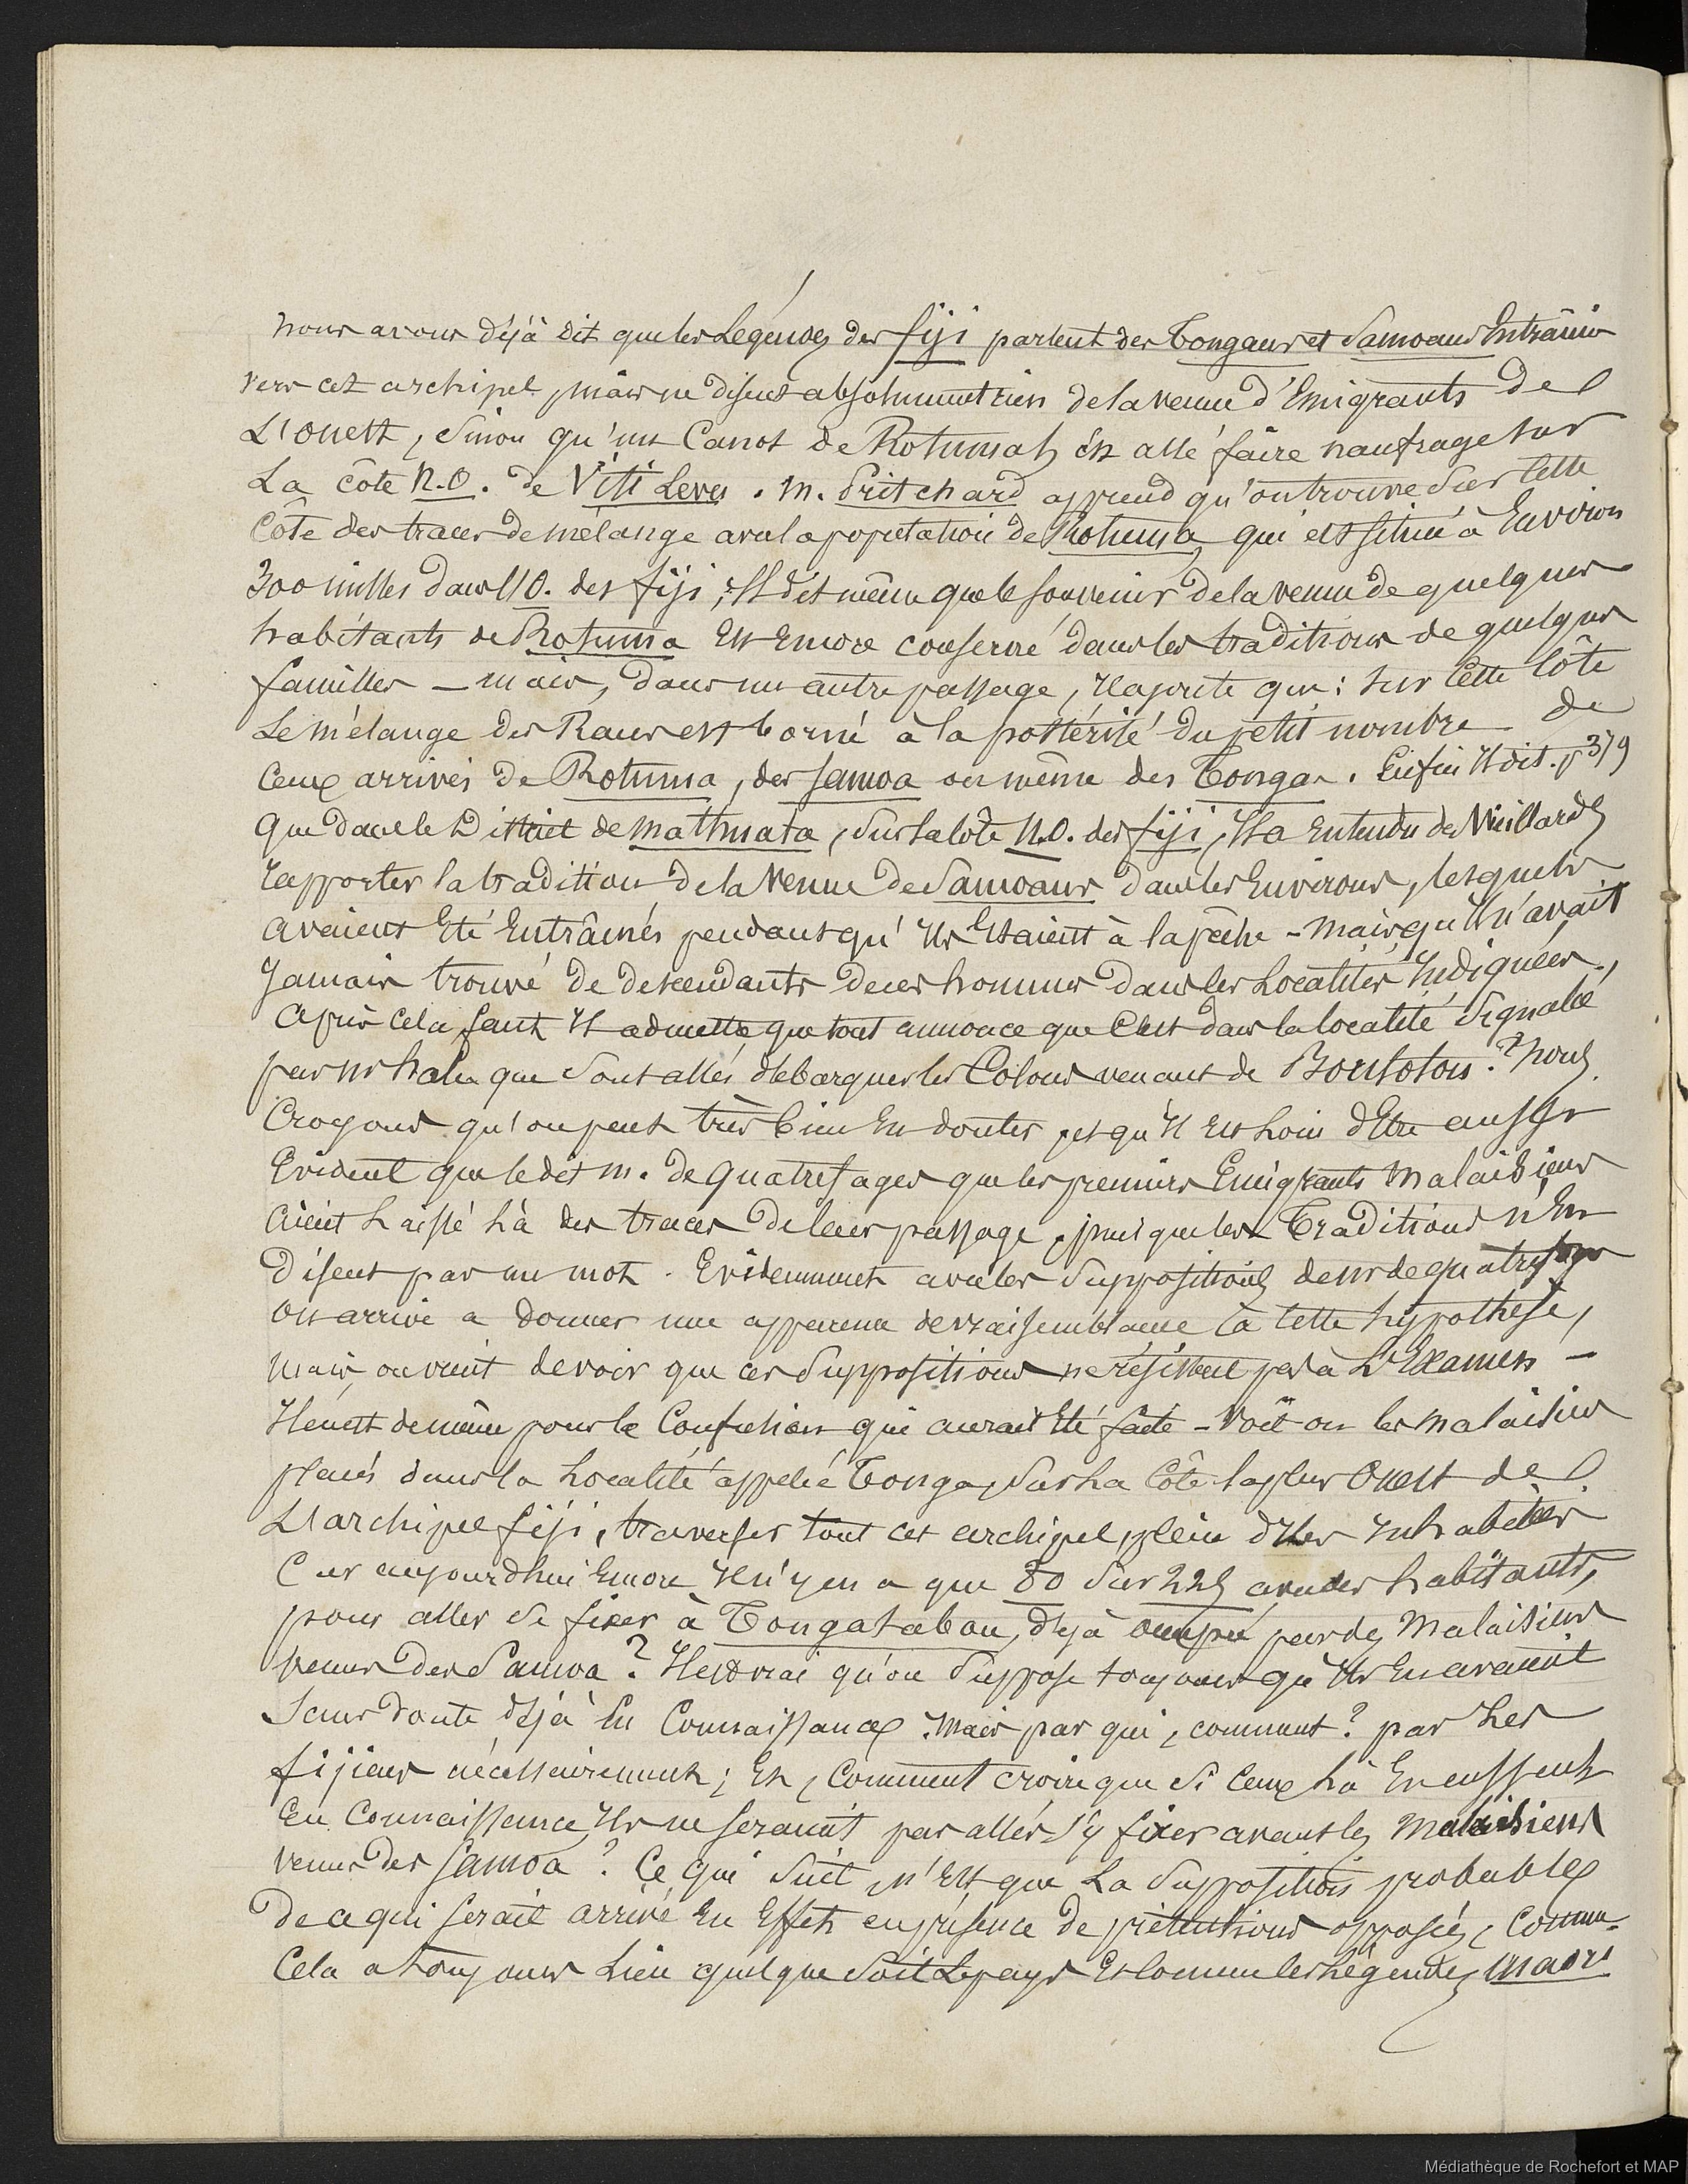 nous avons déjà dit que les Légendes des fiji parlent des Tongans et Samoans Entraînés
vers cet archipel, mais ne disent absolument rien de la venue d'Emigrants de
L'ouest, Sinon qu'un Canot de Rotumah est allé faire naufrage sur
La côte N.O. de Viti Levu. M. Pritchard apprend qu'on trouve Sur Cette
Côte des traces de mélange avec la population de Rotuma, qui est située à Environ
300 milles dans l'O. des fiji; Il dit même que le souvenir de la venue de quelques
habitants de Rotuma Est Encore conservé dans les traditions de quelques
familles — mais, dans un autre passage, il ajoute que: Sur Cette Côte
Le mélange des Races est borné à la postérité du petit nombre de
Ceux arrivés de Rotuma, des Samoa ou même des Tonga. Enfin Il dit. p 379
Que dans le District de , Sur la côte N.O. des fiji, Il a Entendu des Vieillards
rapporter la tradition de la Venue de Samoans dans les Environs, lesquels
avaient Eté Entraînés pendant qu'Ils Etaient à la pêche - Mais qu'Il n'avait
Jamais trouvé de descendants de ces hommes dans les Localités Indiquées.
Après Cela faut Il admettre que tout annonce que C'est dans la localité Signalée
par Mr hale que Sont allés débarquer les Colons venant de Bourotou? Nous
Croyons qu'on peut très bien En douter, et qu'Il est Loin d'Etre aussi
Evident que le dit M. de Quatrefages que les premiers Emigrants Malaisiens
aient Laissé Là des traces de leur passage, puisque les Traditions n'En
disent pas un mot. Evidemment avec les Suppositions de Mr de quatrefages
on arrive à donner une apparence de vraisemblance à Cette hypothèse,
Mais, on vient de voir que ces Suppositions ne résistent pas à L'Examen —
Il en est de même pour la Confusion qui aurait Eté faite - Voit on les Malaisiens
placés dans la Localité appelée Tonga, Sur La Côte la plus Ouest de
L'archipel fiji, traverser tout cet archipel, plein d'Iles Inhabitées
Car aujourd'hui Encore Il n'y en a que 80 Sur 225 avec des habitants,
pour aller Se fixer à Tongatabou, déjà occupée par des Malaisiens
venus des Samoa? Il est vrai qu'on Suppose toujours qu'Ils En avaient
Sans doute déjà En Connaissance. Mais par qui, comment? par Les
fijiens nécessairement; Et, Comment croire que Si Ceux Là En eussent
Eu Connaissance, Ils ne seraient pas allés S'y fixer avant les Malaisiens
venus des Samoa? Ce qui Suit n'Est que La Supposition probable
De ce qui serait arrivé En Effet en présence de prétentions opposées, Comme
Cela a toujours Lieu quelque Soit Le pays Et Comme les Légendes Maori
Médiathèque de Rochefort et MAP